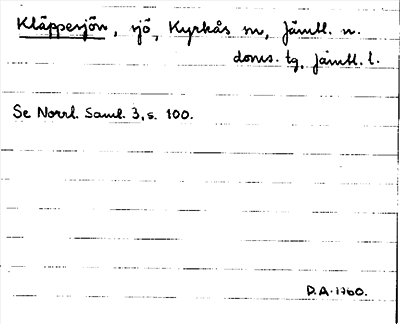 Kläppesjön, sjö, Kyrkås sn, Jämtl. n.
doms. tg, Jämtl. l.
Se Norrl. Saml. 3, s. 100.
D.A. 1760.